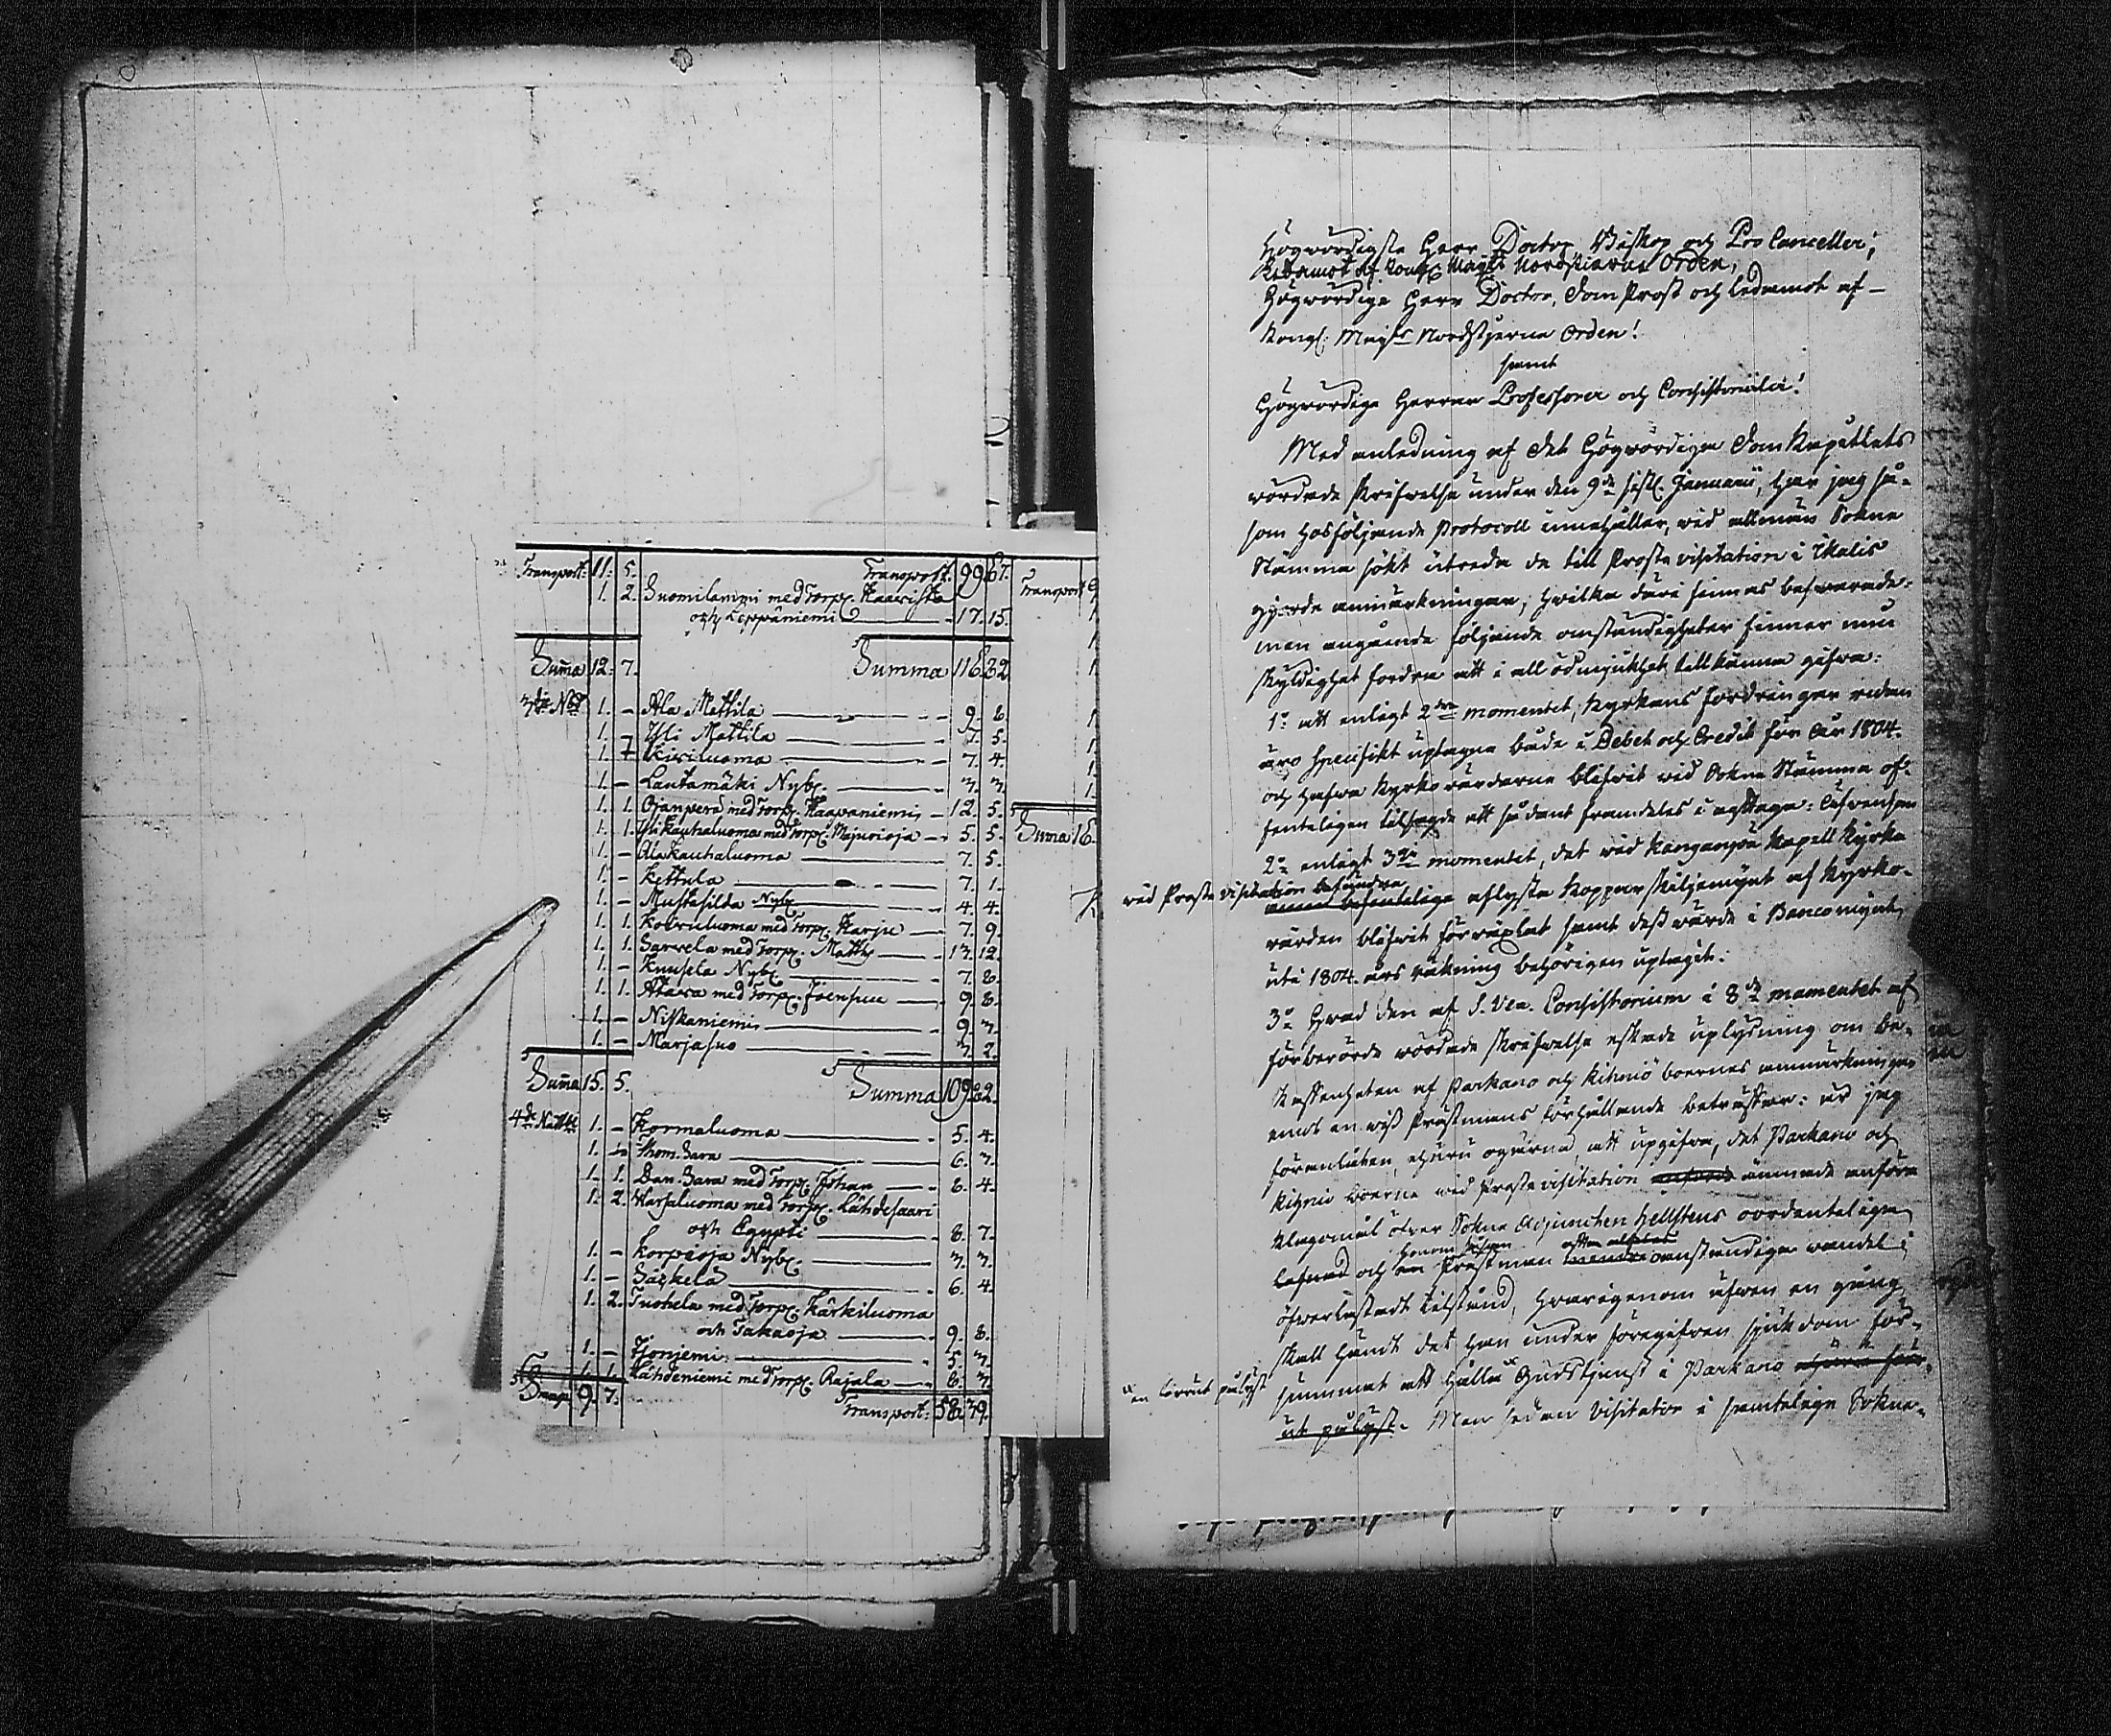 Transport: 11. 5. Transport. 99. 67.
1. 2. Suomilammi med Torp. Kaarista
och Leppäniemi 17. 15.
Summa 12. 7. Summa 116. 82.
3die Ntt 1. – Ala Mattila 9. 8.
1. Yli Mattila 7. 5.
1. Kiriluoma 7. 4.
1. – Lautamäki Nybg. 3. 3.
1. 1. Ojanperä med Torp. Haapaniemi 12. 5.
1. 1. Yli Kauhaluoma med Torp. Majurioja 5. 5.
1. – Ala Kauhaluoma 7. 5.
1. – Kettula 7. 1.
1. – Mustasilda Nybg. 4. 4.
1. 1. Koivuluoma med Torp. Karju 7. 9.
1. 1. Sarvela med Torp. Matts 13. 12.
1. – Knusela Nybg. 7. 8.
1. 1. Alava med Torp. Joensuu 9. 8.
1. – Niskaniemi 9. 3.
1. – Marjasuo 3. 2.
Summa 15. 5. Summa 109. 82.
4de Natt 1. – Kormaluoma 5. 4.
1. – Thom. Sara 6. 3.
1. 1. Dan. Sara med Torp. Johan 8. 4.
1. 2. Harsaluoma med Torp. Lähdesaari
och Egypti 8. 7.
1. – Korpioja Nybg. 3. 3.
1. – Säskelä 6. 4.
1. 2. Tuohela med Torp. Kärkiluoma
och Takaoja 9. 8.
1. – Tjoniemi 5. 3.
1. 1. Lähdeniemi med Torp. Rajala 8. 3.
9. 7. Transport: 58. 39.
Transport
Summa 16.
Högwördigste Herr Doctor, Biskop och Pro Canceller,
Ledamot af Kongl. Maijts Nordstierne Orden,
Högwördige Herr Doctor, Dom Prost och Ledamot af
Kongl. Maijts Nordstjerne Orden!
samt
Högwördige Herrar Professorer och Consistoriales!
Med anledning af det Högwördige Dom Kapitlets
wördade skrifwelse under den 9de sistl. Januarii, har jag så-
som hosföljande Protocoll innehåller, wid allmän Sokne
Stämma sökt utreda de till Proste visitation i Ikalis
gjorde anmärkningar, hwilka däri finnas beswarade:
men angående följande omständigheter finner min
skyldighet fordra att i all ödmjukhet tillkänna gifwa:
1o att enligt 2dra momentet, Kyrkans fordringar redan
äro specifikt uptagne både i Debet och Credit för år 1804.
och hafwa Kyrkowärdarne blifwit wid Sokne Stämma of-
fenteligen tilsagde att sådant framdeles i agttaga: äfwensom
2o enligt 3die momentet, det wid Kangangså Kapell Kyrka
wid Proste visitation befundne
aflyste Koppar skiljemynt af Kyrko-
wärden blifwit förwäxlat samt dess wärde i Bancomynt,
uti 1804. års räkning behörigen uptagit:
3o Hwad den af S. Ven. Consistorium i 8de momentet af
förberörde wördade skrifwelse äskade uplysning om be-
skaffenheten af Parkano och Kihniö boernes anmärkningar
emot en wiss Prestmans förhållande beträffar: är jag
föranlåten, ehuru ogerna, att upgifwa, det Parkano och
Kihniö boerne wid Prostevisitation ämnade anföra
klagomål öfwer Sokne Adjuncten Hellstens oordentelige
lefnad och Prestman oanständiga wandel i
öfwerlastadt tilstånd, hwarigenom äfwen en gång
skall händt det han under föregifwen sjukdom för-
en börrut pålyst
summat att hålla Gudstjenst i Parkano
ut pålyst. Men sedan Visitator i samtelige Sokne-